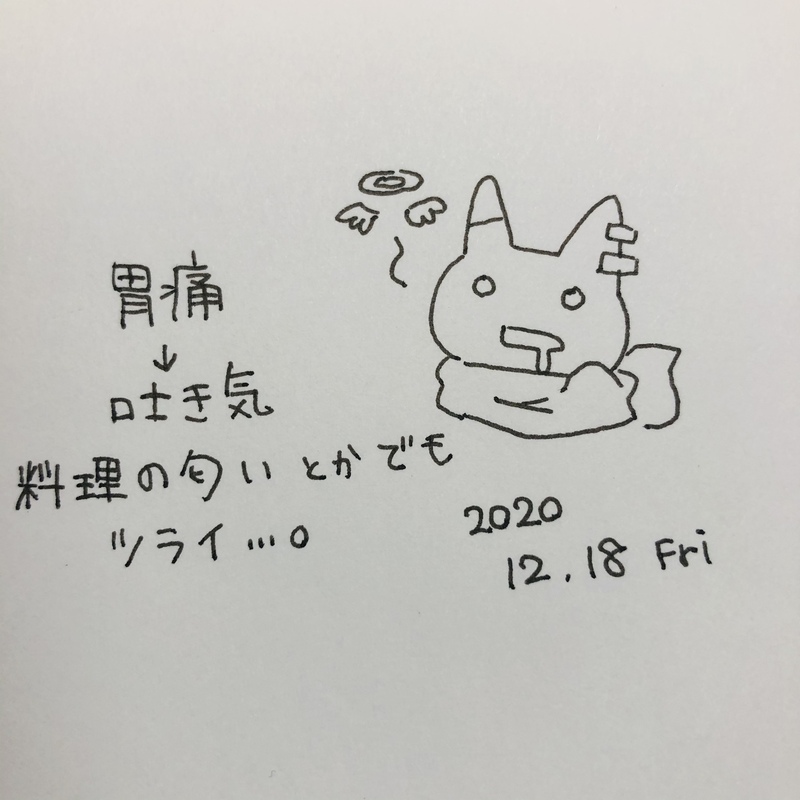 胃痛
↓
吐き気
料理の匂いとかでも
ツライ…。
2020
12.18 Fri